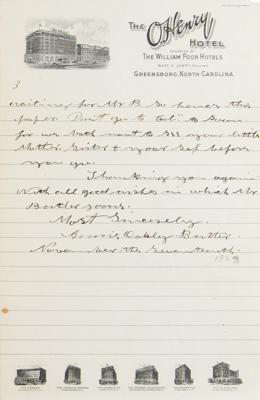 THE O.Henry
HOTEL
OPERATED BY
THE WILLIAM FOOR HOTELS
GREENSBORO, NORTH CAROLINA
3
waiting for Mr B. So hence this
paper. Don't go to Cal" to soon
for we both want to see your little
Mother, Sister & your self before
you go.
Thanking you again
With all good wishes in which Mr
Butler joins.
Most Sincerely
Annie Oakley Butler.
November the Seventeenth
192